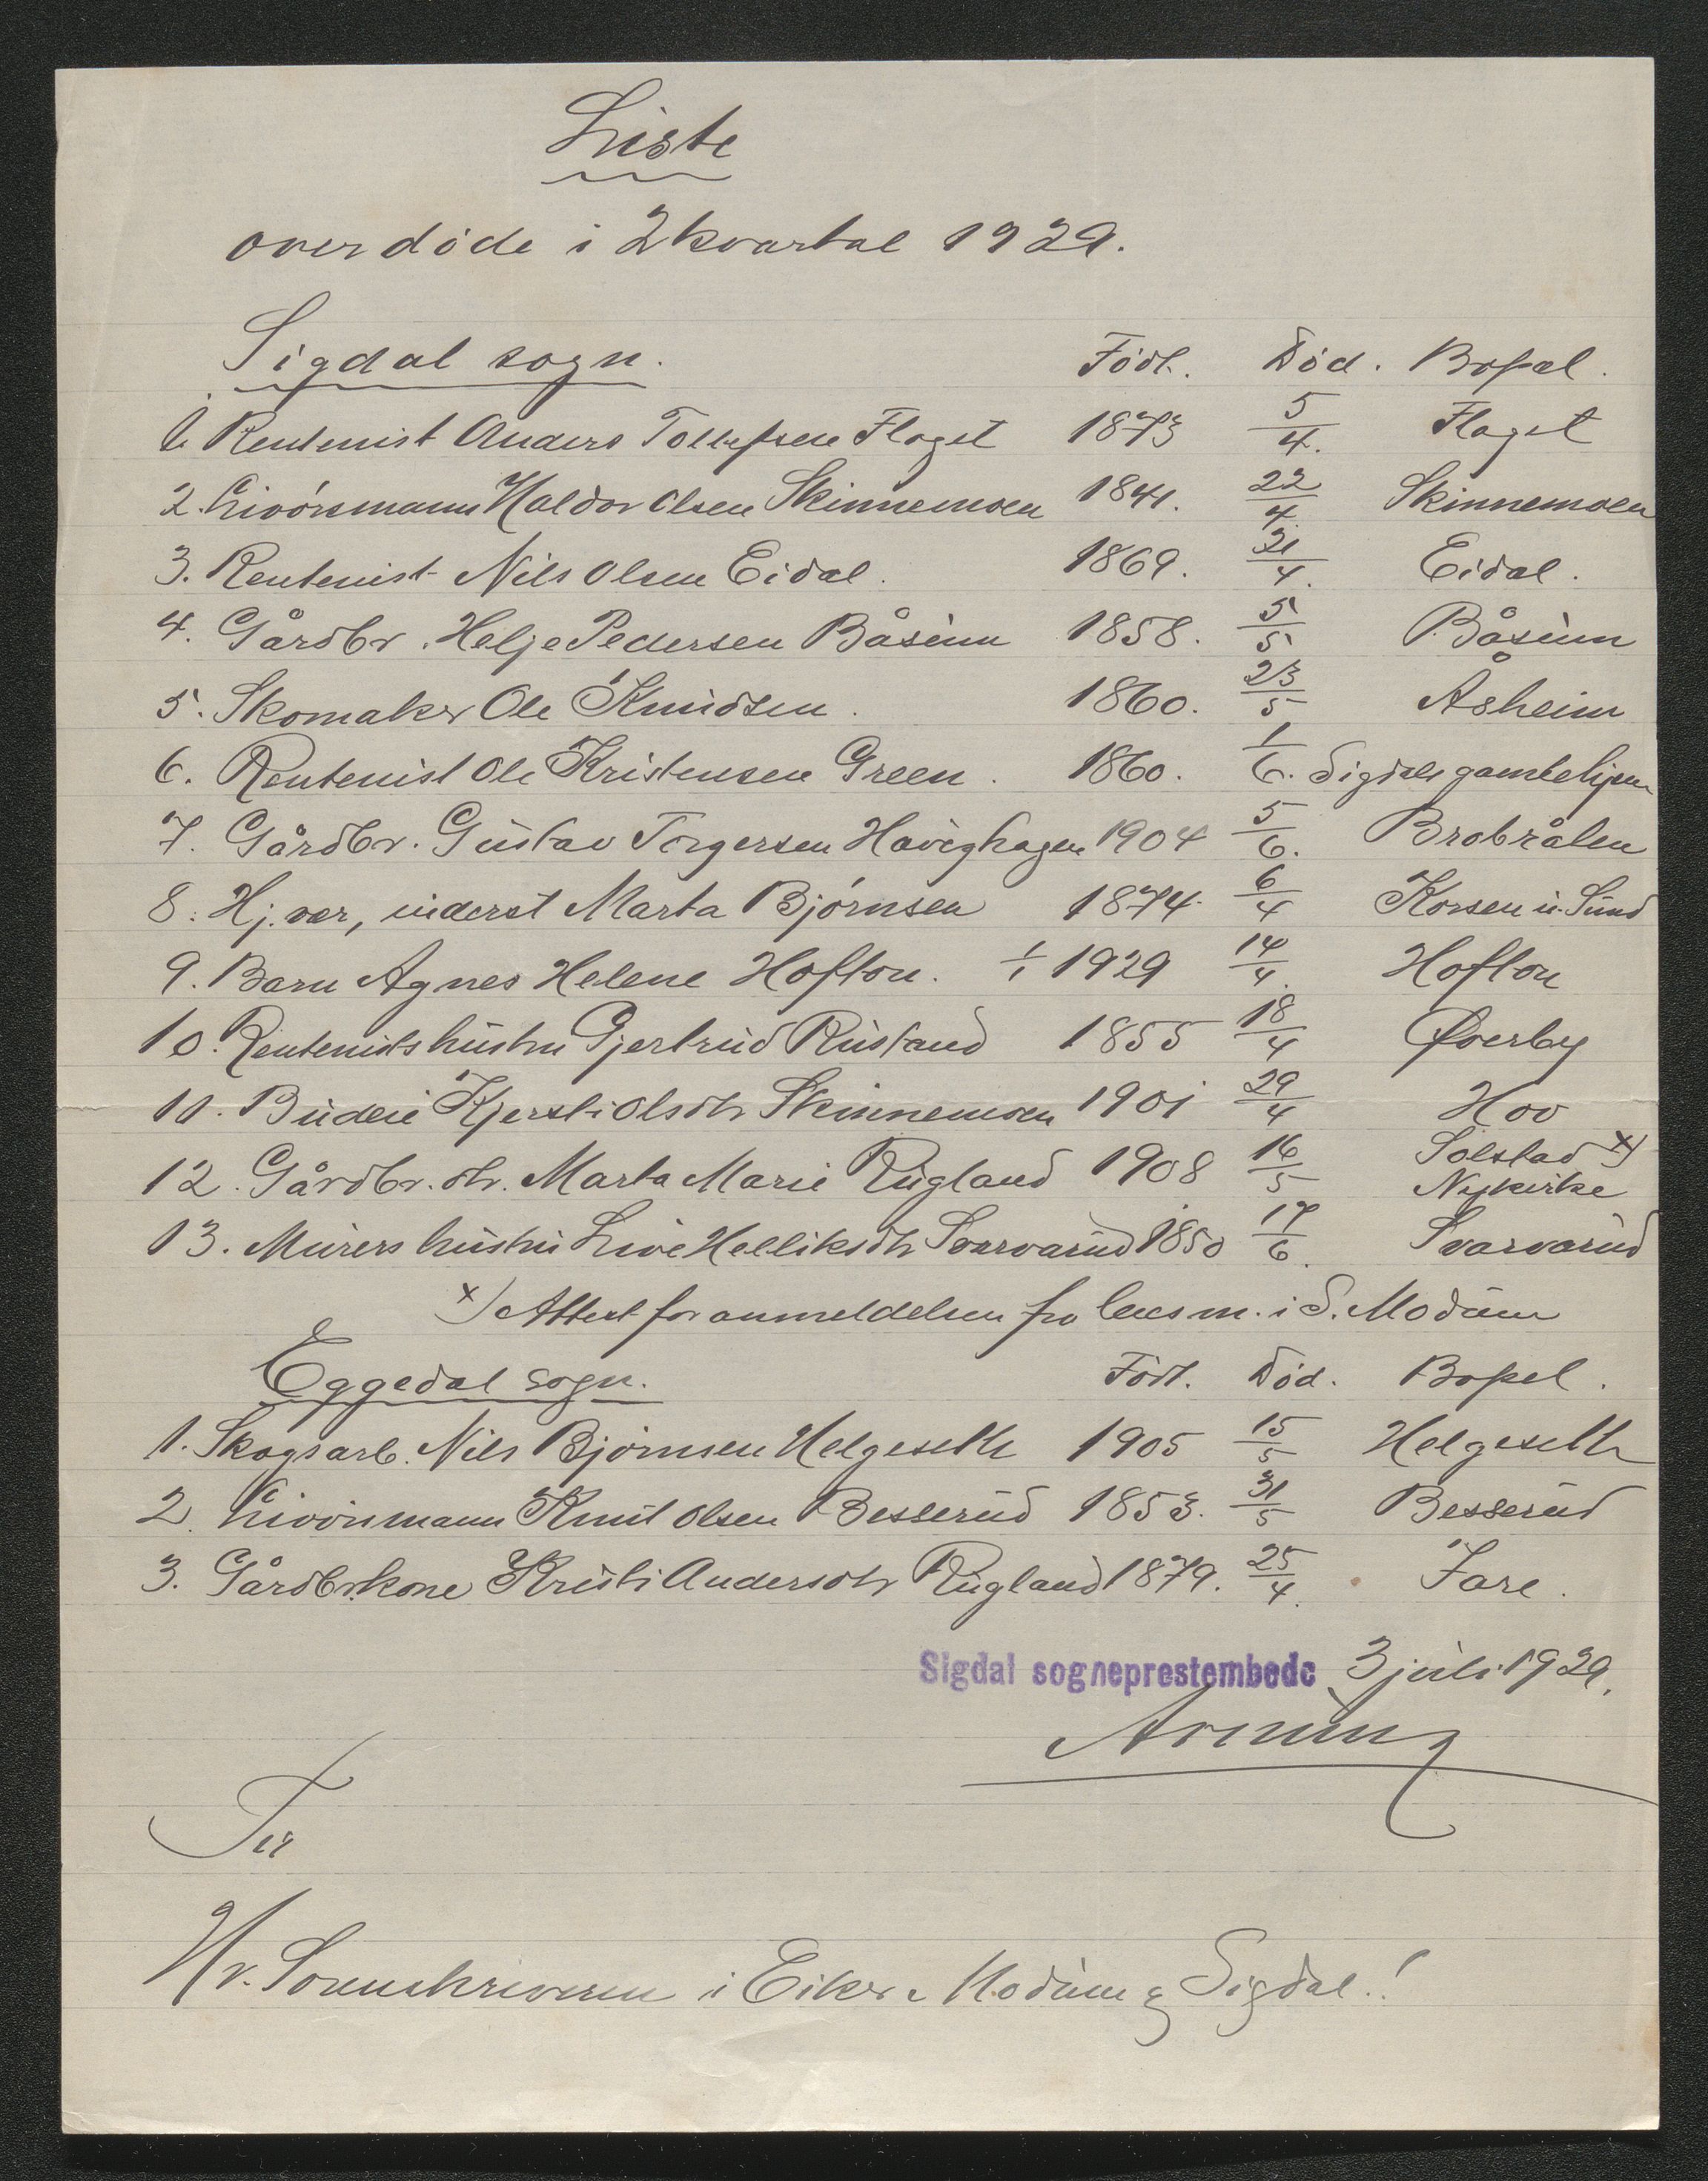 Liste
over døde i 2 kvartal 1929.
Sigdal sogn. Født. Død. Bopæl.
1. Rentenist Anders Tollefsen Flaget 1873 5/4. Flaget
2. Livørsmann Haldor Olsen Skinnemoen 1841. 22/4. Skinnemoen
3. Rentenist Nils Olsen Eidal. 1869. 21/4. Eidal.
4. Gårdbr. Helge Pedersen Båsum 1858. 5/5 Båsum
5. Skomaker Ole Knudsen. 1860. 23/5 Åsheim
6. Rentenist Ole Kristensen Green. 1860. 1/6. Sigdals gamlehjem
7. Gårdbr. Gustav Torgersen Haveghagen 1904 5/6. Brobråten
8. Hj. vær, inderst Marta Bjørnsen 1874. 6/4 Korsen u. Sund
9. Barn Agnes Helene Hofton. 1/1 1929 14/4. Hofton
10. Rentenists hustru Gjertrud Rustand 1855 18/4 Øverby
11. Budeie Kjersti Olsdtr Skinnemoen 1901 29/4 Hov
12. Gårdbr. dtr. Marta Marie Rugland 1908 16/5 Solstad x)
Nykirke
13. Murers hustru Live Helliksdtr Svarvarud 1850 17/6. Svarvarud
x) Attest for anmeldelsen fra lensm. i S. Modum
Eggedal sogn. Født. Død. Bopel.
1. Skogsarb. Nils Bjørnsen Helgeseth 1905 15/5 Helgeseth
2. Livørsmann Knut Olsen Besserud 1853. 31/5 Besserud
3. Gårdbr.kone Kristi Andersdtr Rugland 1879. 25/4. Fare.
Sigdal sogneprestembede 3 juli 1929.
Til
Hr. Sorenskriveren i Eiker, Modum & Sigdal!